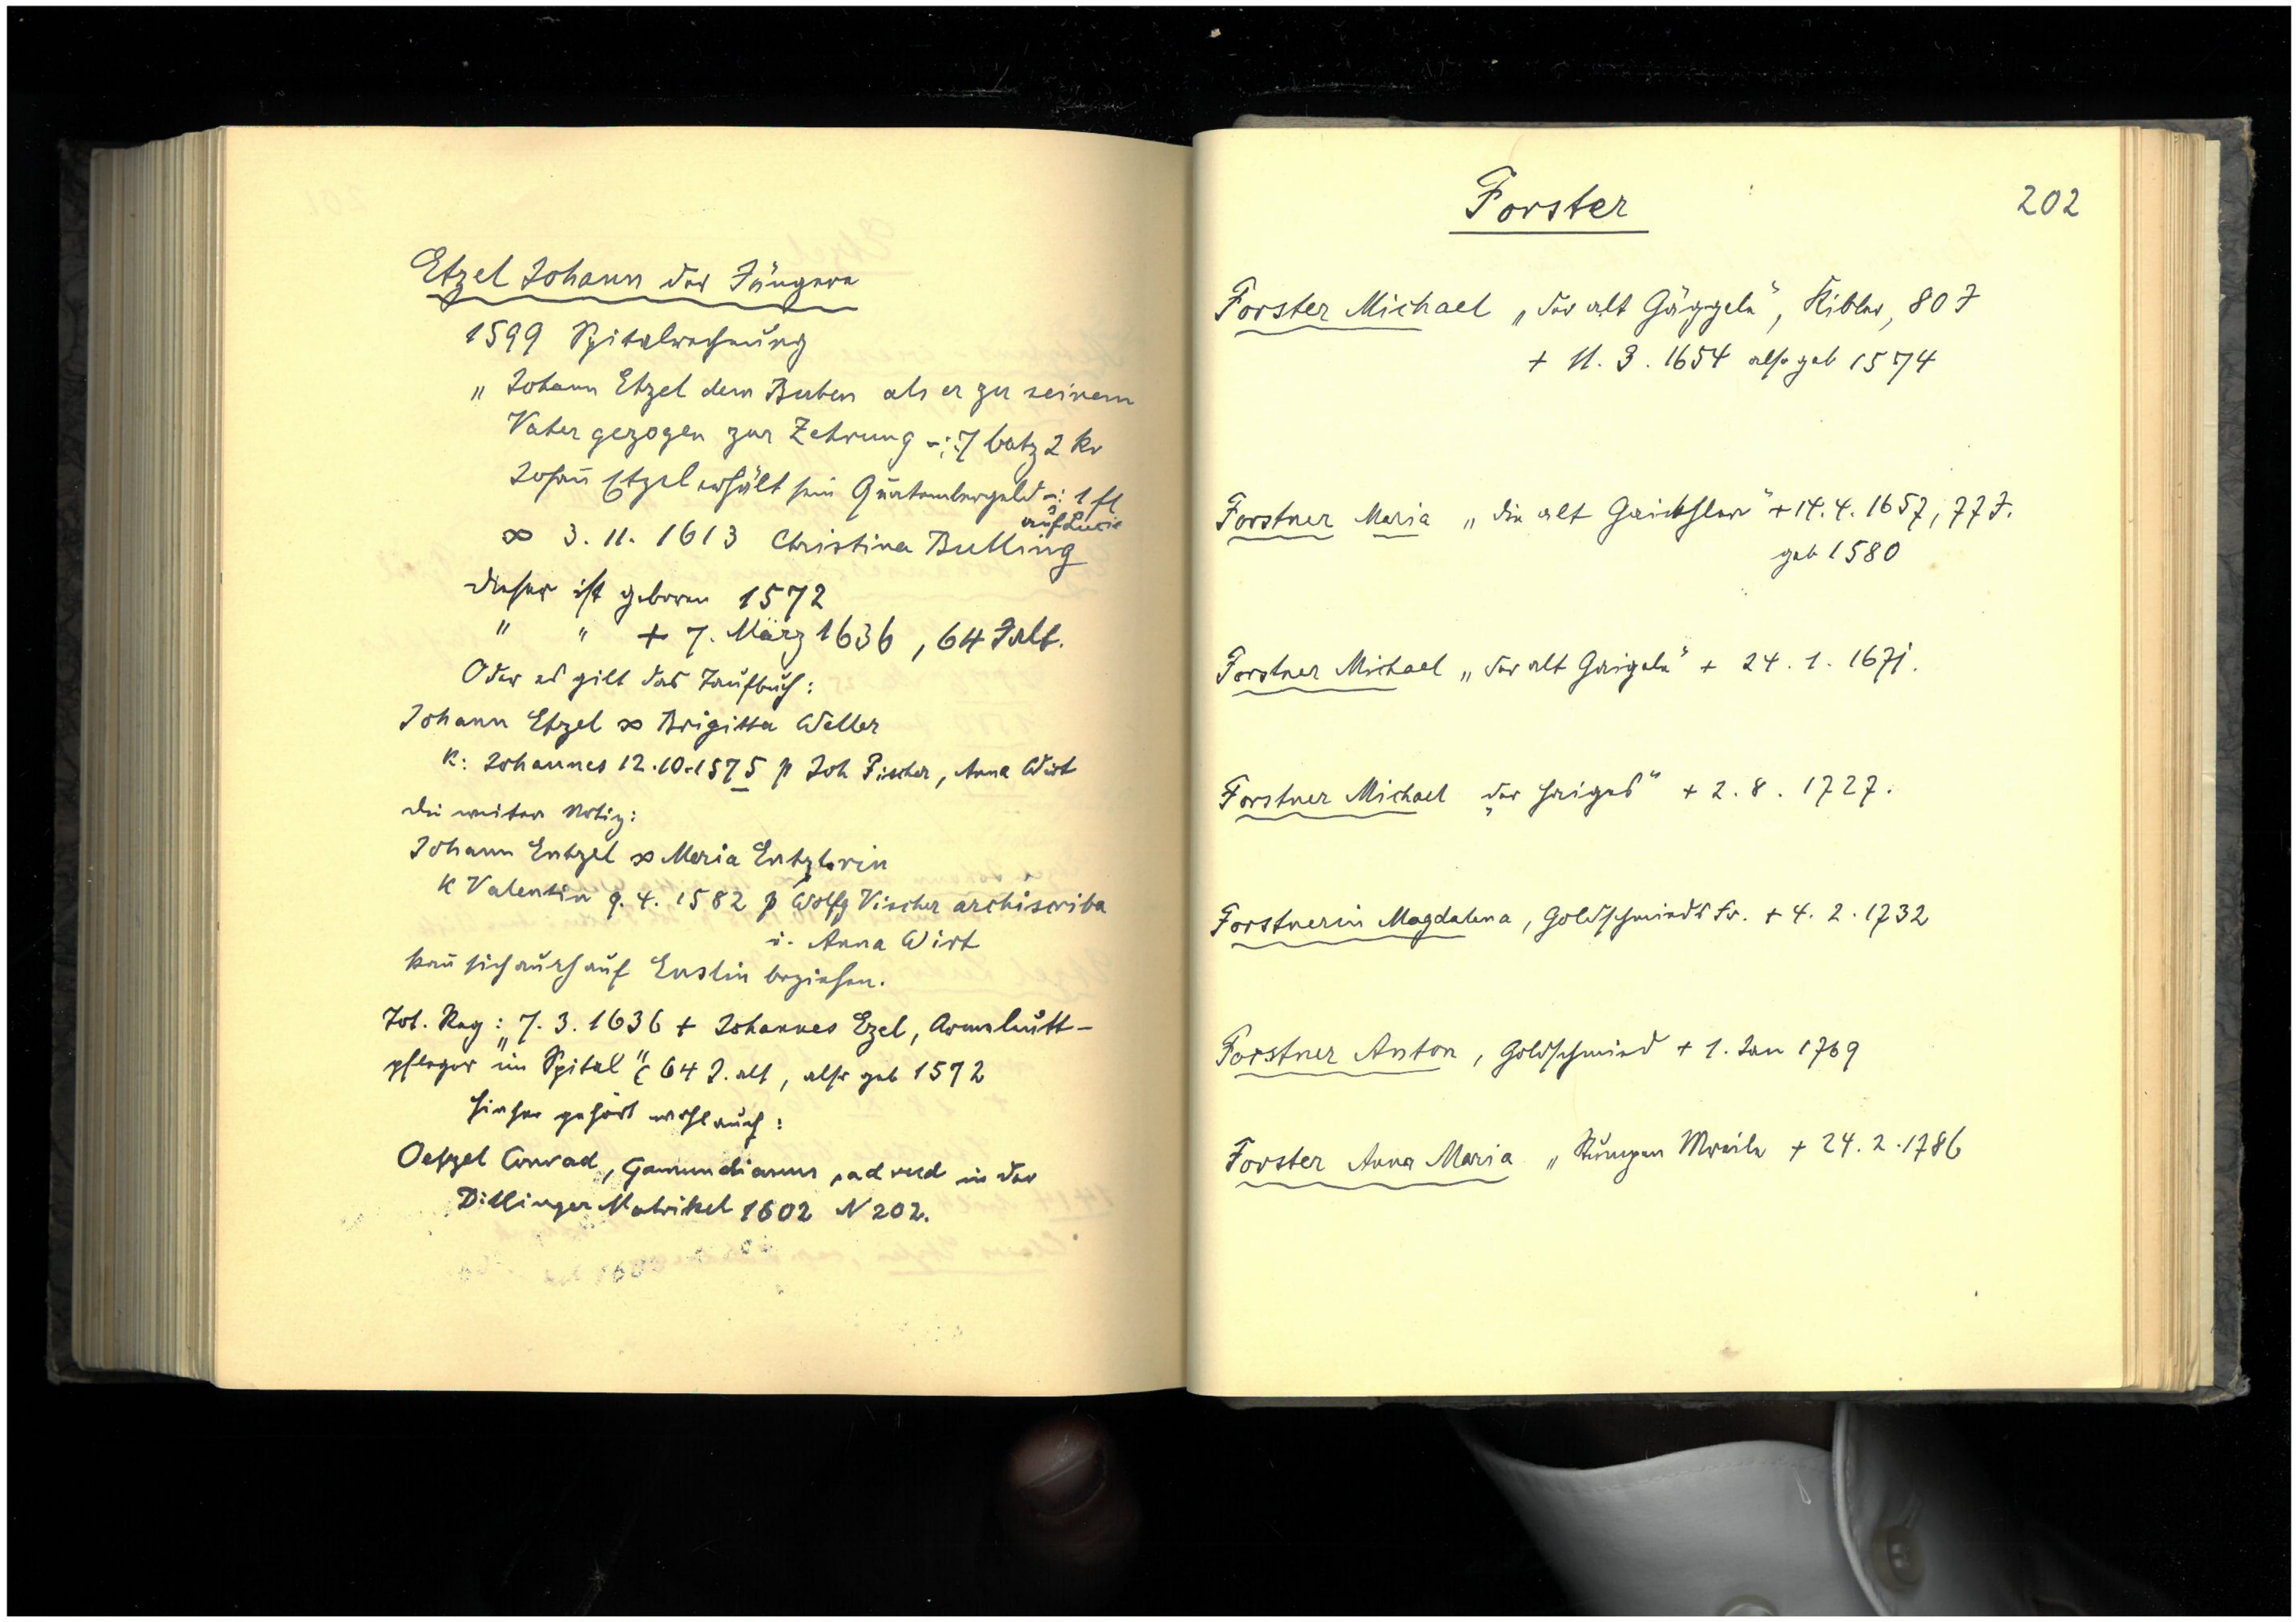 Etzel Johann der Jüngere
1599 Spitalrechnung
„Johann Etzel dem Buben als er zu seinem
Vater gezogen zur Zehrung -: 7 batz 2 kr
Johañ Etzel erhält sein Quatembergeld -: 1 fl
auf Lucie
∞ 3. 11. 1613 Christina Butling
dieser ist geboren 1572
" " + 7. März 1636, 64 J alt.
Oder es gilt das Taufbuch:
Johann Etzel ∞ Brigitta Weller
K: Johannes 12.10.1575 p Joh Fischer, Anna Wirt
die weitere Notiz:
Johann Entzel ∞ Maria Entzlerin
K Valentin 9. 4. 1582 p Wolfg Vischer archiscriba
u. Anna Wirt
kañ sich auch auf Enslin beziehen.
Tot. Reg: 7. 3. 1636 + Johannes Ezel, Armeleütt-
pfleger "im Spital" 64 J. alt, also geb 1572
hieher gehört wohl auch:
Oetzel Conrad, Gamundianus, ad rud in der
Dillinger Matrikel 1602 N 202.
Forster
202
Forster Michael „der alt Gäggele", Kibler, 80 J
+ 11. 3. 1654 also geb 1574
Forstner Maria „die alt + 14. 4. 1657, 77 J.
geb 1580
Forstner Michael „der alt Gaigele" + 24. 1. 1671.
Forstner Michael „der + 2. 8. 1727.
Forstnerin Magdalena, Goldschmieds Fr. + 4. 2. 1732
Forstner Anton, Goldschmied + 1. Jan 1769
Forster Anna Maria „ + 24. 2. 1786